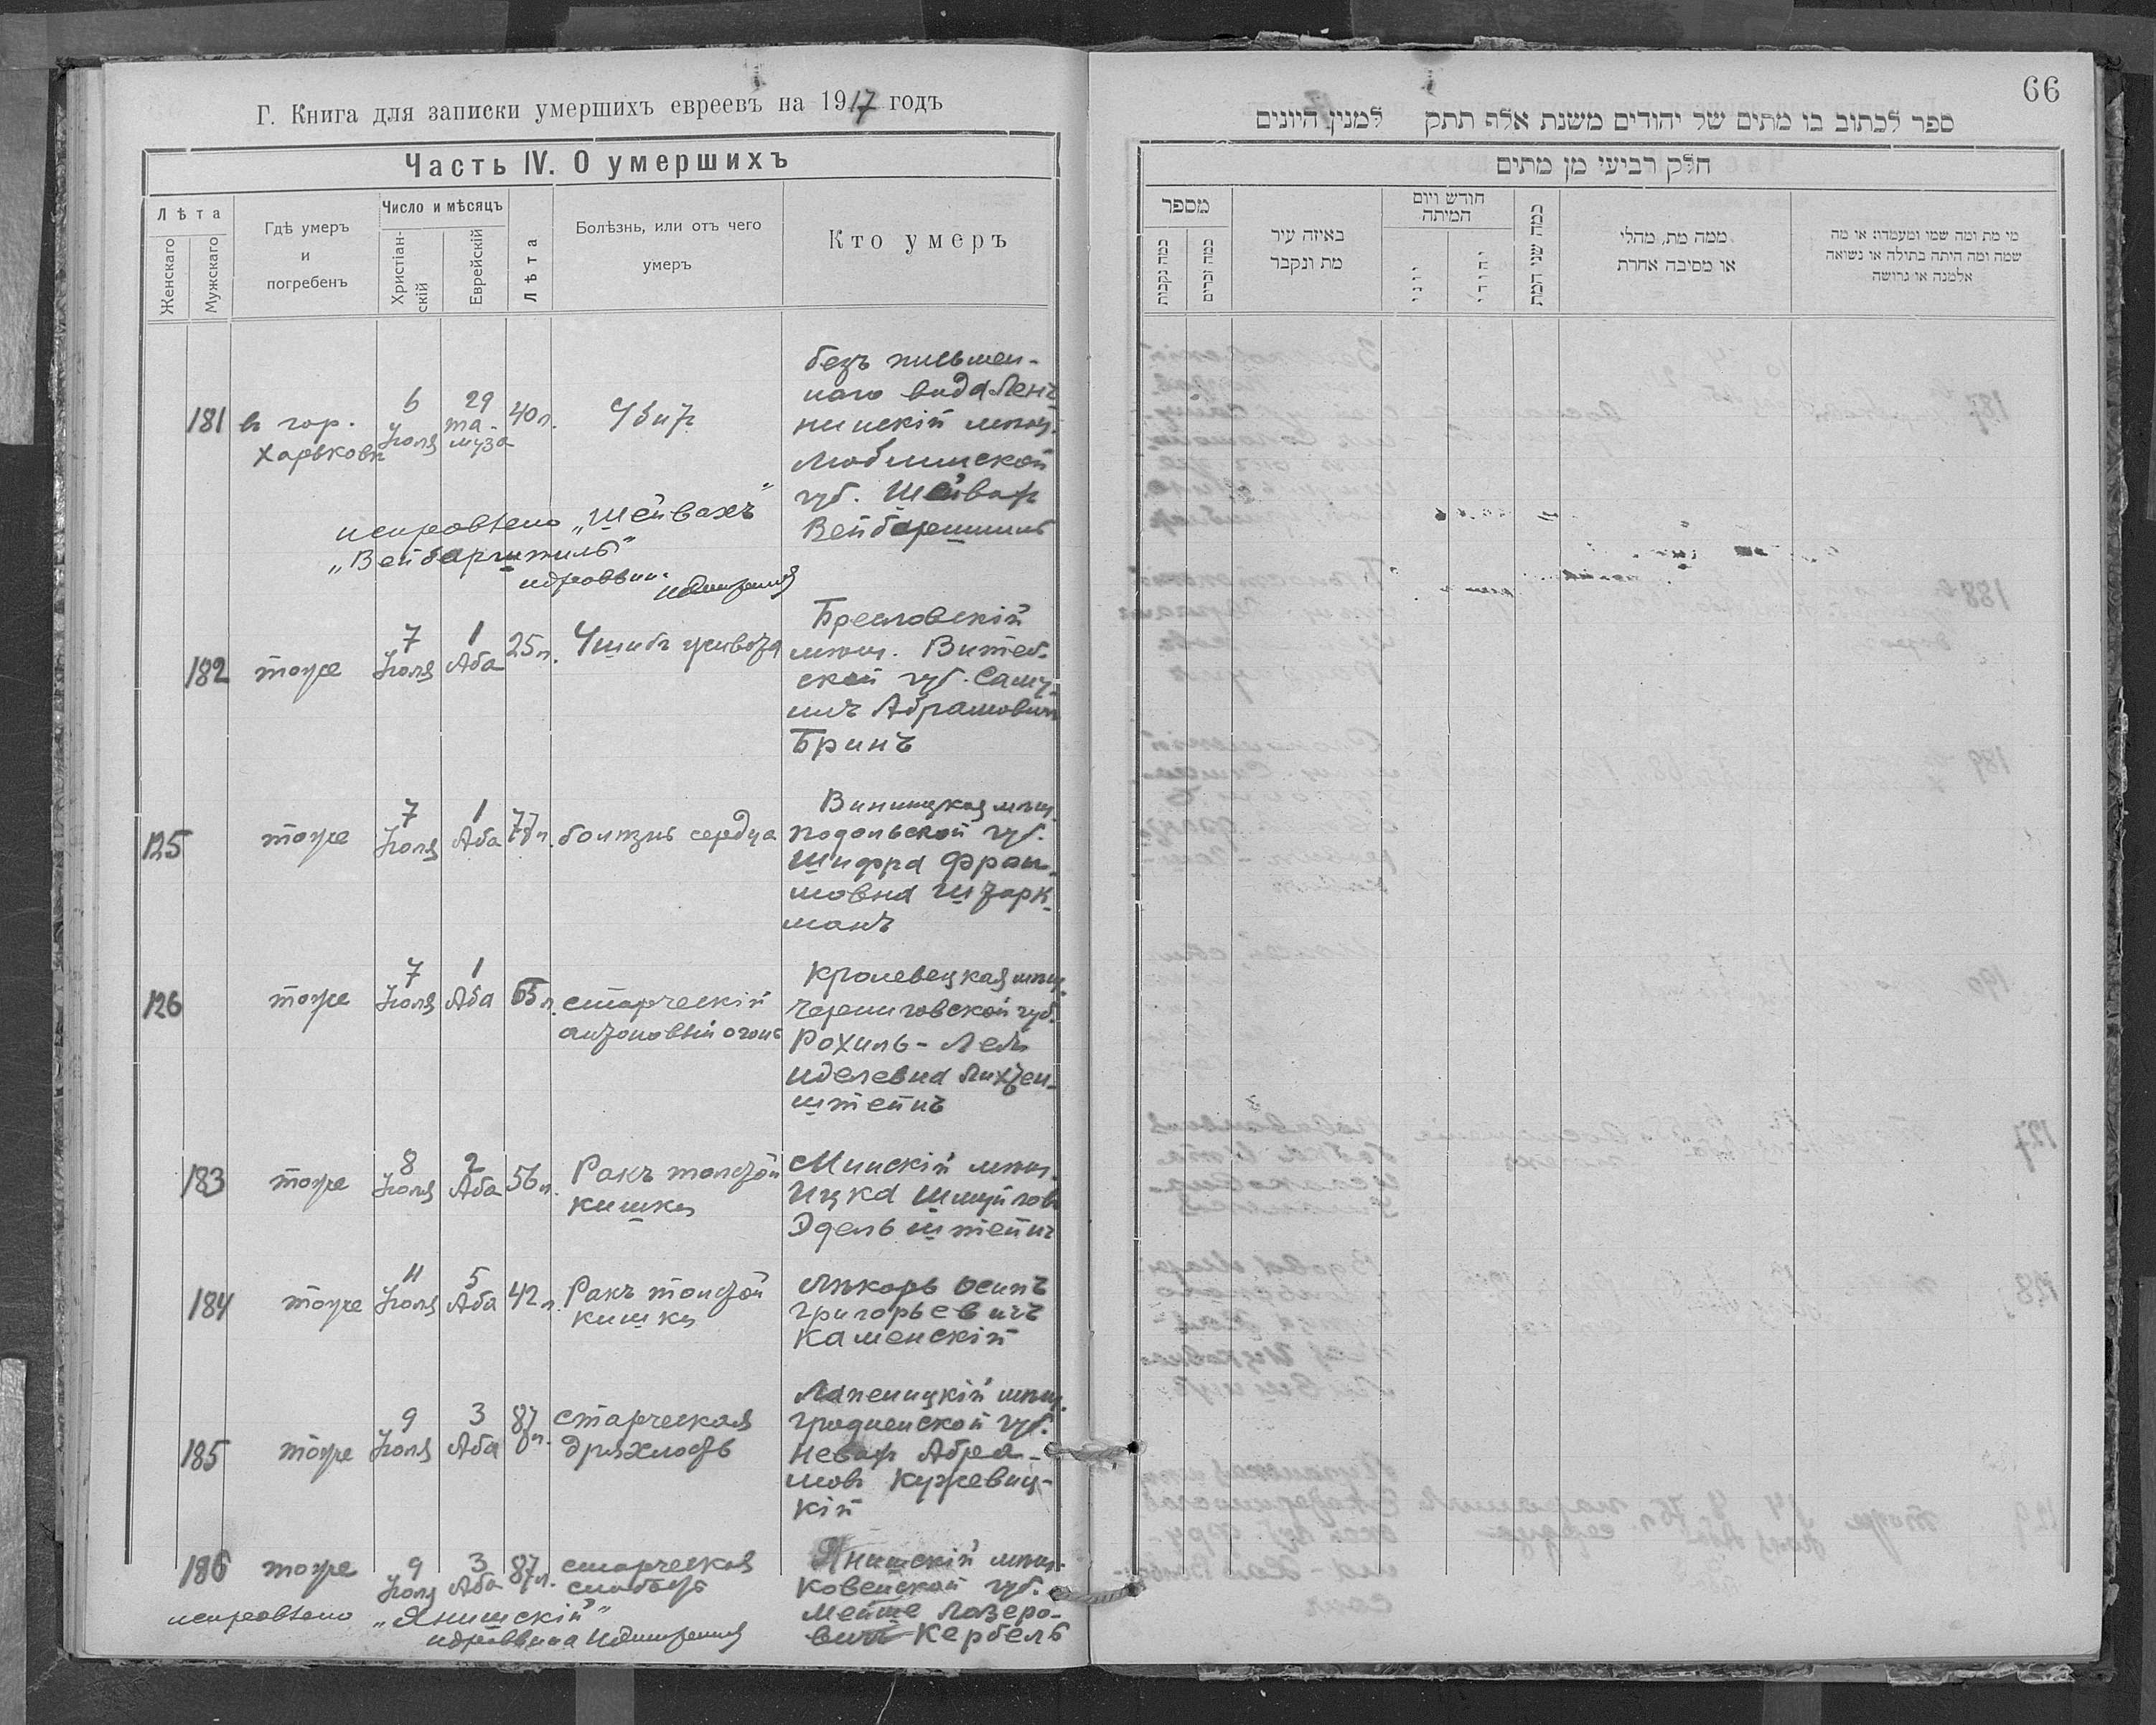 Г. Книга для записки умершихъ евреевъ на 1917 годъ
Часть IV. О умершихъ
Лѣта
Женскаго
Мужскаго
Гдѣ умеръ
и
погребенъ
Число и мѣсяцъ
Христіан-
скій
Еврейскій
Лѣта
Болѣзнь, или отъ чего
умеръ
Кто умеръ
181 в гор.
Харьковѣ
6
Іюля
29
та-
муза
40 л.
Убит
безъ письмен-
наго вида
мѣщ.
Люблинской
губ. Шейвах
исправлено „Шейвахъ"
182 тоже
7
Іюля
1
Аба
25 л.
Бреславскій
мѣщ. Витеб-
ской губ. Саму-
илъ Абрамович
Бринъ
125 тоже
7
Іюля
1
Аба
77 л.
болѣзнь сердца
Винницкая мѣщ.
Подольской губ.
Шифра
Штарк-
манъ
126 тоже
7
Іюля
1
Аба
65 л.
старческій
антоновый огонь
Кролевецкая мѣщ.
Черниговской губ.
Рохиль-Лея
Иделевна Лихтен-
штейнъ
183 тоже
8
Іюля
2
Аба
56 л.
Ракъ толстой
кишки
Минскій мѣщ.
Ицка Шмуйлов
Эдельштейнъ
184 тоже
11
Іюля
5
Аба
42 л.
Ракъ толстой
кишки
Лѣкарь Осипъ
Григорьевичъ
Каменскій
185 тоже
9
Іюля
3
Аба
87 л.
старческая
дряхлость
Лапеницкій мѣщ.
Гродненской губ.
Невах Абра-
мов Кужевиц-
кій
186 тоже
9
Іюля
3
Аба
87 л.
старческая
слабость
Янишскій мѣщ.
Ковенской губ.
Мейше Лазеро-
вичъ Кербель
исправлено „Янишскій"
66
ספר לכתוב בו מתים של יהודים משנת אלף תתק למנין היונים
חלק רביעי מן מתים
מספר
כמה נקבות
כמה זכרים
באיזה עיר
מת ונקבר
חודש ויום
המיתה
יוני
יהודי
כמה שני המת
ממה מת, מחלי
או מסיבה אחרת
מי מת ומה שמו ומעמדו: או מה
שמה ומה היתה בתולה או נשואה
אלמנה או גרושה